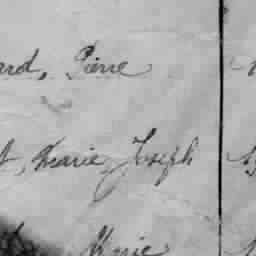 ard, Pierre
t, Marie Joseph
Marie